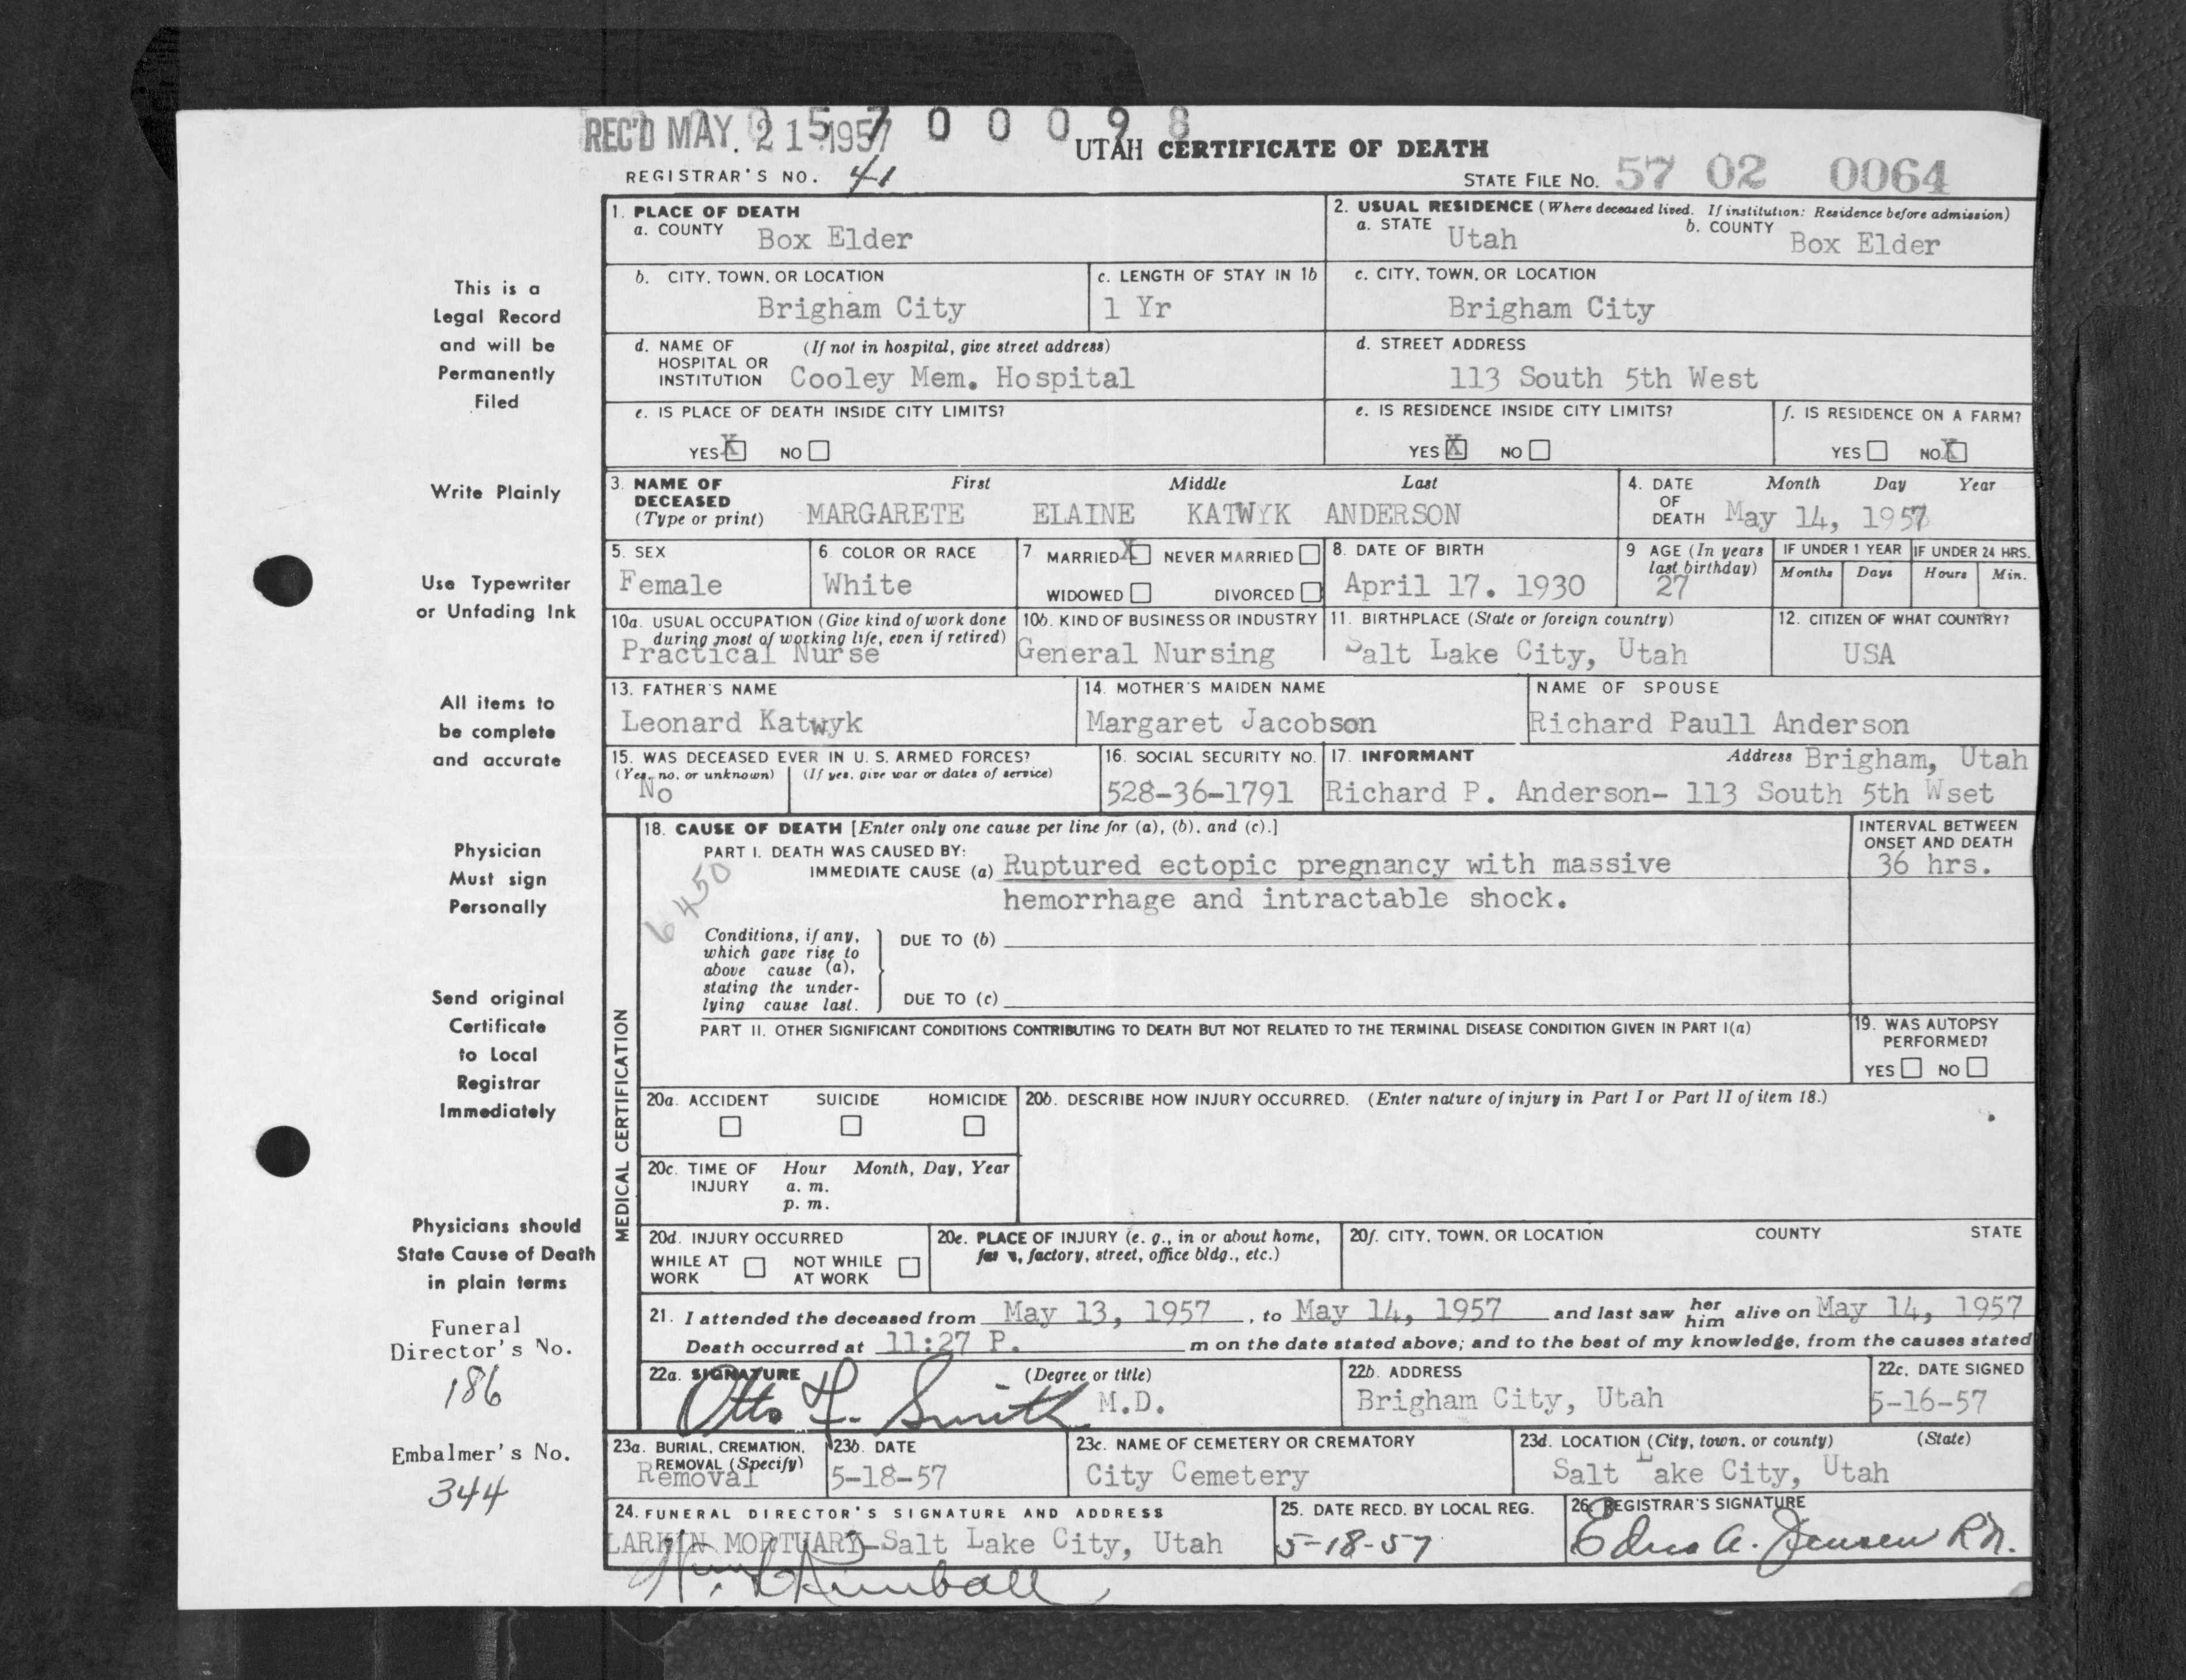 REC'D MAY. 21 1957 5 7 0 0 0 9 8
UTAH CERTIFICATE OF DEATH
REGISTRAR'S NO. 41
STATE FILE No. 57 02 0064
This is a
Legal Record
and will be
Permanently
Filed
Write Plainly
Use Typewriter
or Unfading Ink
All items to
be complete
and accurate
Physician
Must sign
Personally
Send original
Certificate
to Local
Registrar
Immediately
Physicians should
State Cause of Death
in plain terms
Funeral
Director's No.
186
Embalmer's No.
344
1. PLACE OF DEATH
a. COUNTY Box Elder
2. USUAL RESIDENCE (Where deceased lived. If institution: Residence before admission)
a. STATE Utah b. COUNTY Box Elder
b. CITY, TOWN, OR LOCATION
Brigham City
c. LENGTH OF STAY IN 1b
1 Yr
c. CITY, TOWN, OR LOCATION
Brigham City
d. NAME OF HOSPITAL OR INSTITUTION (If not in hospital, give street address)
Cooley Mem. Hospital
d. STREET ADDRESS
113 South 5th West
e. IS PLACE OF DEATH INSIDE CITY LIMITS?
YES X NO
e. IS RESIDENCE INSIDE CITY LIMITS?
YES X NO
f. IS RESIDENCE ON A FARM?
YES NO X
3. NAME OF DECEASED (Type or print) First Middle Last
MARGARETE ELAINE KATWYK ANDERSON
4. DATE OF DEATH Month Day Year
May 14, 1957
5. SEX
Female
6. COLOR OR RACE
White
7 MARRIED X NEVER MARRIED
WIDOWED DIVORCED
8. DATE OF BIRTH
April 17. 1930
9 AGE (In years last birthday)
27
IF UNDER 1 YEAR IF UNDER 24 HRS.
Months Days Hours Min.
10a. USUAL OCCUPATION (Give kind of work done during most of working life, even if retired)
Practical Nurse
10b. KIND OF BUSINESS OR INDUSTRY
General Nursing
11. BIRTHPLACE (State or foreign country)
Salt Lake City, Utah
12. CITIZEN OF WHAT COUNTRY?
USA
13. FATHER'S NAME
Leonard Katwyk
14. MOTHER'S MAIDEN NAME
Margaret Jacobson
NAME OF SPOUSE
Richard Paull Anderson
15. WAS DECEASED EVER IN U. S. ARMED FORCES?
(Yes, no, or unknown) (If yes, give war or dates of service)
No
16. SOCIAL SECURITY NO.
528-36-1791
17. INFORMANT Address Brigham, Utah
Richard P. Anderson- 113 South 5th Wset
MEDICAL CERTIFICATION
18. CAUSE OF DEATH [Enter only one cause per line for (a), (b), and (c).]
INTERVAL BETWEEN ONSET AND DEATH
PART I. DEATH WAS CAUSED BY:
IMMEDIATE CAUSE (a) Ruptured ectopic pregnancy with massive
36 hrs.
hemorrhage and intractable shock.
6450
Conditions, if any, which gave rise to above cause (a), stating the underlying cause last.
DUE TO (b)
DUE TO (c)
PART II. OTHER SIGNIFICANT CONDITIONS CONTRIBUTING TO DEATH BUT NOT RELATED TO THE TERMINAL DISEASE CONDITION GIVEN IN PART I(a)
19. WAS AUTOPSY PERFORMED?
YES NO
20a. ACCIDENT SUICIDE HOMICIDE
20b. DESCRIBE HOW INJURY OCCURRED. (Enter nature of injury in Part I or Part II of item 18.)
20c. TIME OF INJURY Hour Month, Day, Year
a. m.
p. m.
20d. INJURY OCCURRED
WHILE AT WORK NOT WHILE AT WORK
20e. PLACE OF INJURY (e. g., in or about home, factory, street, office bldg., etc.)
20f. CITY, TOWN, OR LOCATION COUNTY STATE
21. I attended the deceased from May 13, 1957, to May 14, 1957 and last saw her him alive on May 14, 1957
Death occurred at 11:27 P. m on the date stated above; and to the best of my knowledge, from the causes stated
22a. SIGNATURE (Degree or title)
Otto F. Smith M.D.
22b. ADDRESS
Brigham City, Utah
22c. DATE SIGNED
5-16-57
23a. BURIAL, CREMATION, REMOVAL (Specify)
Removal
23b. DATE
5-18-57
23c. NAME OF CEMETERY OR CREMATORY
City Cemetery
23d. LOCATION (City, town, or county) (State)
Salt Lake City, Utah
24. FUNERAL DIRECTOR'S SIGNATURE AND ADDRESS
LARKIN MORTUARY-Salt Lake City, Utah
Kimball
25. DATE RECD. BY LOCAL REG.
5-18-57
26. REGISTRAR'S SIGNATURE
Edna A. Jensen R.N.